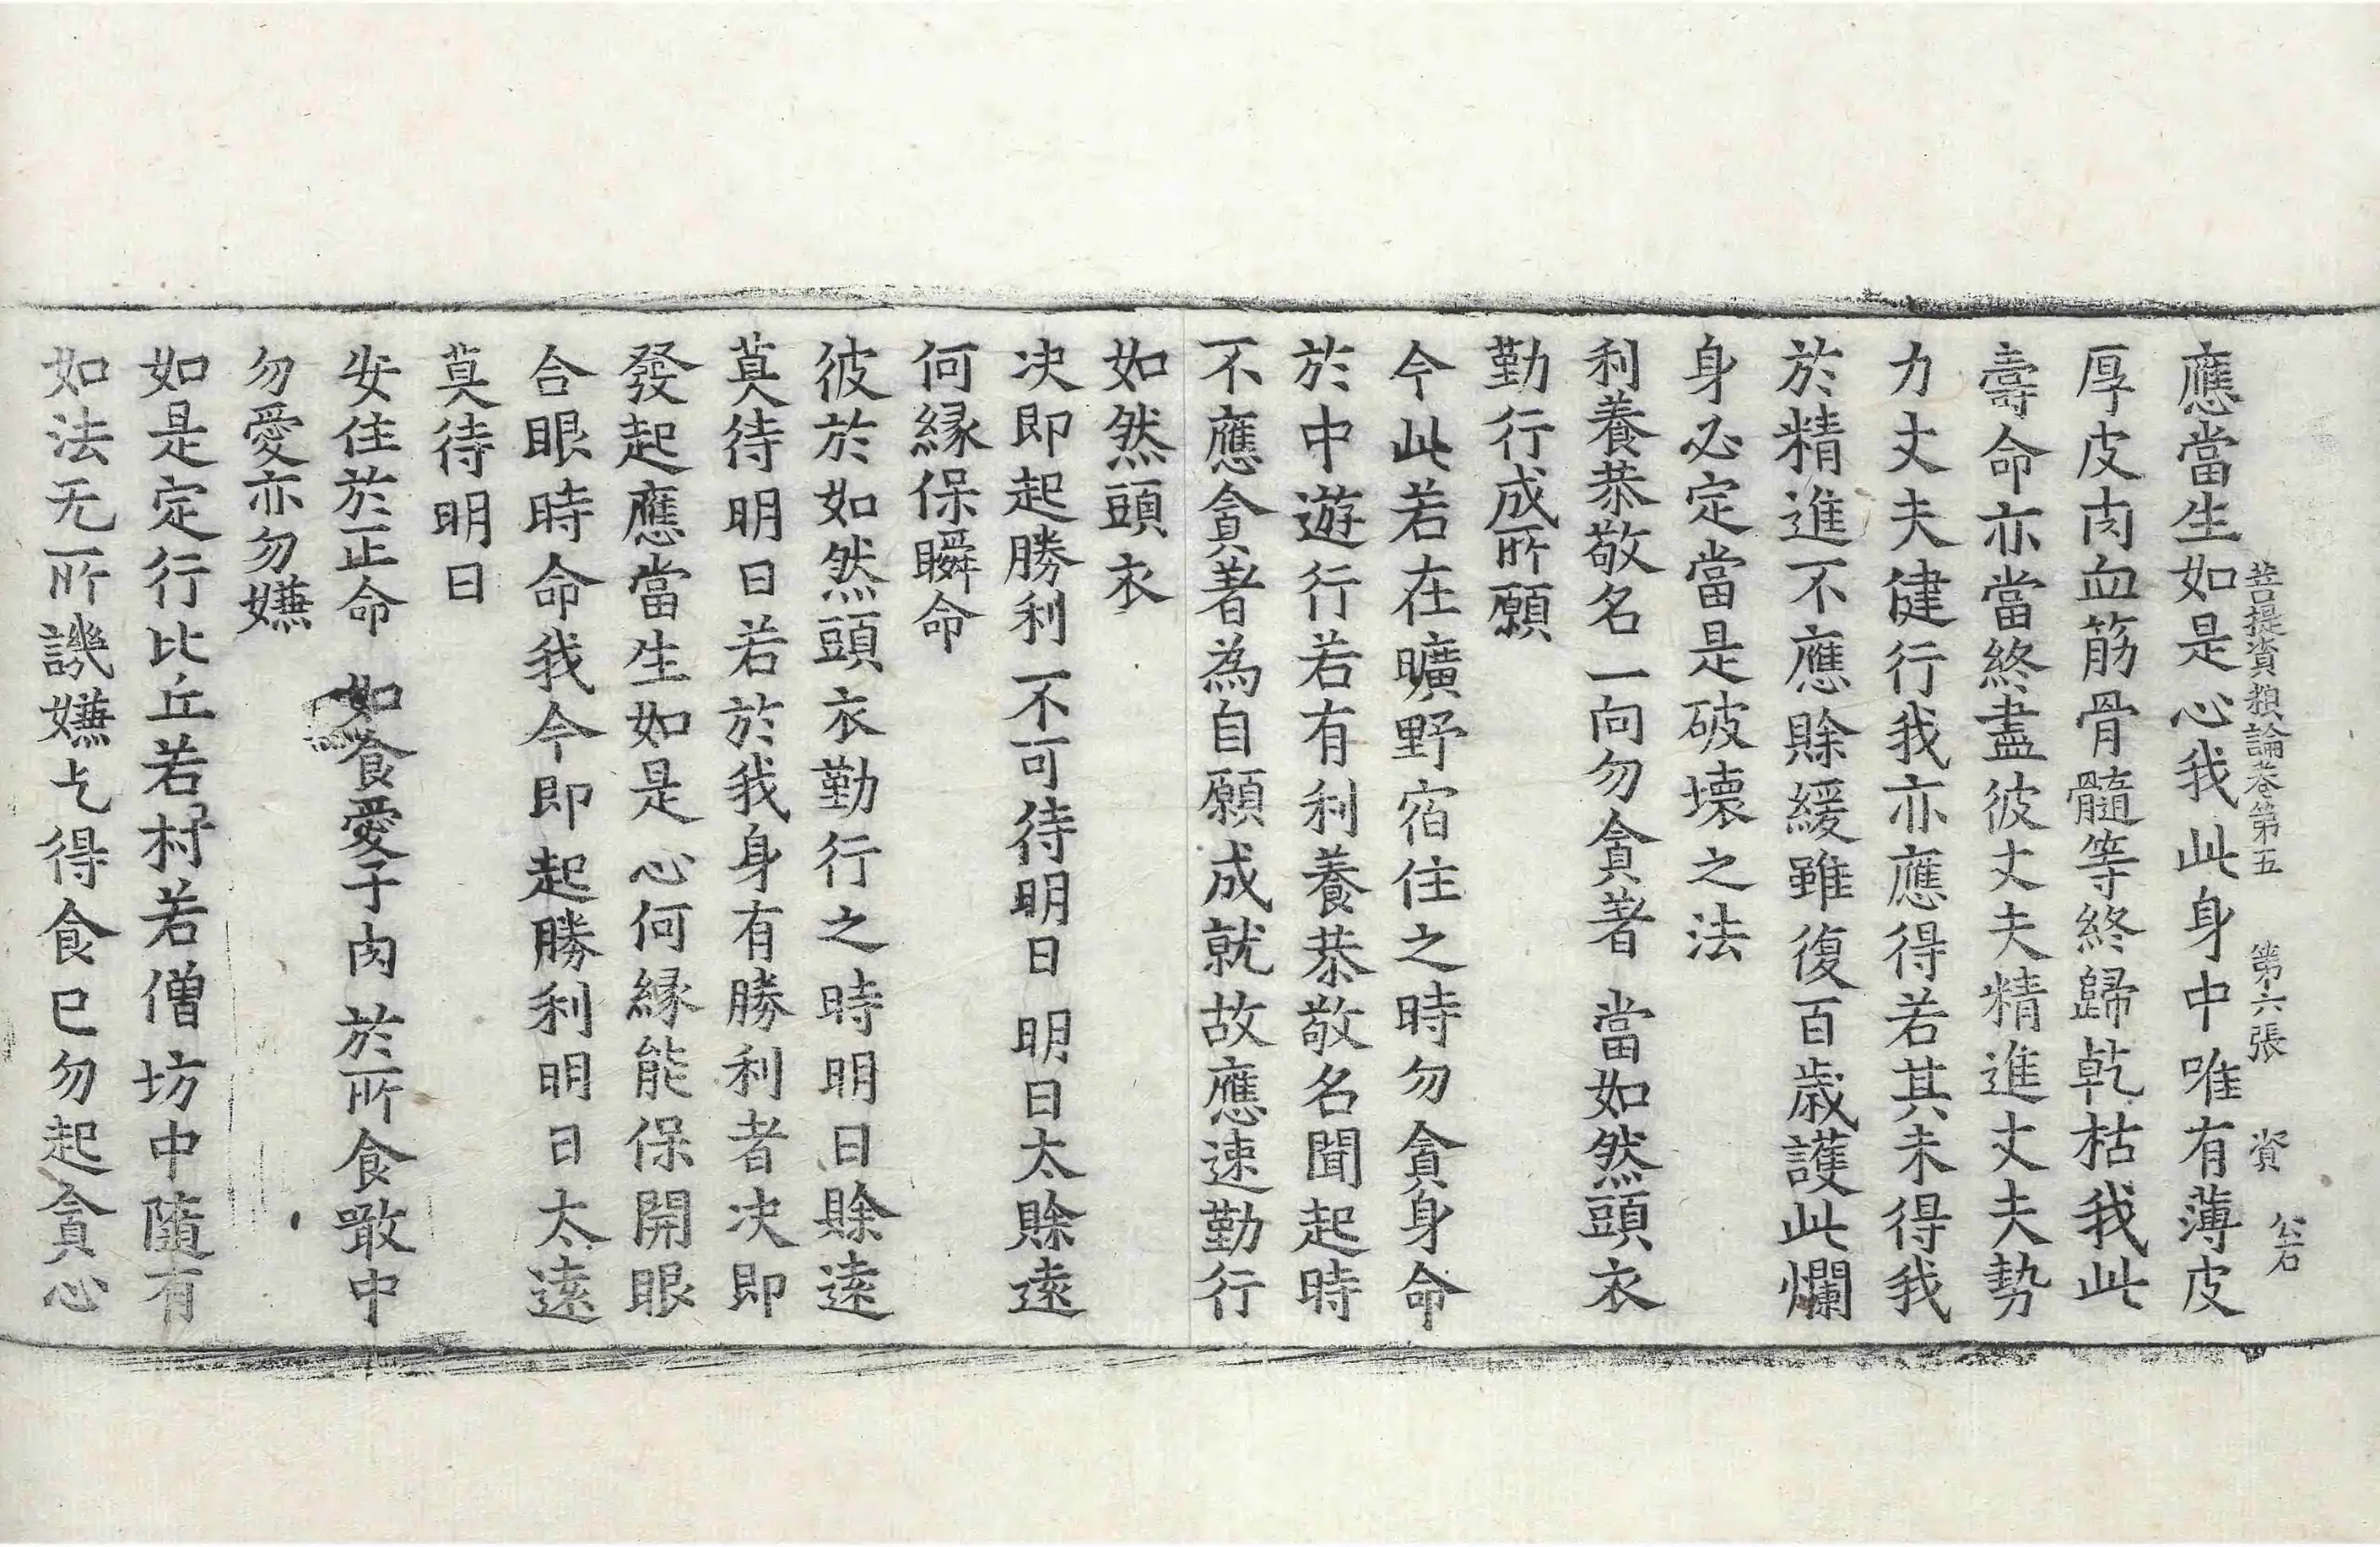 菩提資粮論卷第五 第六張 資 公石
應當生如是心我此身中唯有薄皮
厚皮肉血筋骨髓等終歸乹枯我此
壽命亦當終盡彼丈夫精進丈夫勢
力丈夫健行我亦應得若其未得我
於精進不應賒緩雖復百歲護此爛
身必定當是破壞之法
利養恭敬名一向勿貪著 當如然頭衣
勤行成所願
今此若在曠野宿住之時勿貪身命
於中遊行若有利養恭敬名聞起時
不應貪著為自願成就故應速勤行
如然頭衣
决即起勝利不可待明日 明日太賒遠
何緣保瞬命
彼於如然頭衣勤行之時明日賒遠
莫待明日若於我身有勝利者决即
發起應當生如是心何緣能保開眼
合眼時命我今即起勝利明日太遠
莫待明日
安住於正命 如食愛子肉 於所食噉中
勿愛亦勿嫌
如是定行比丘若村若僧坊中隨有
如法无所譏嫌乞得食已勿起貪心